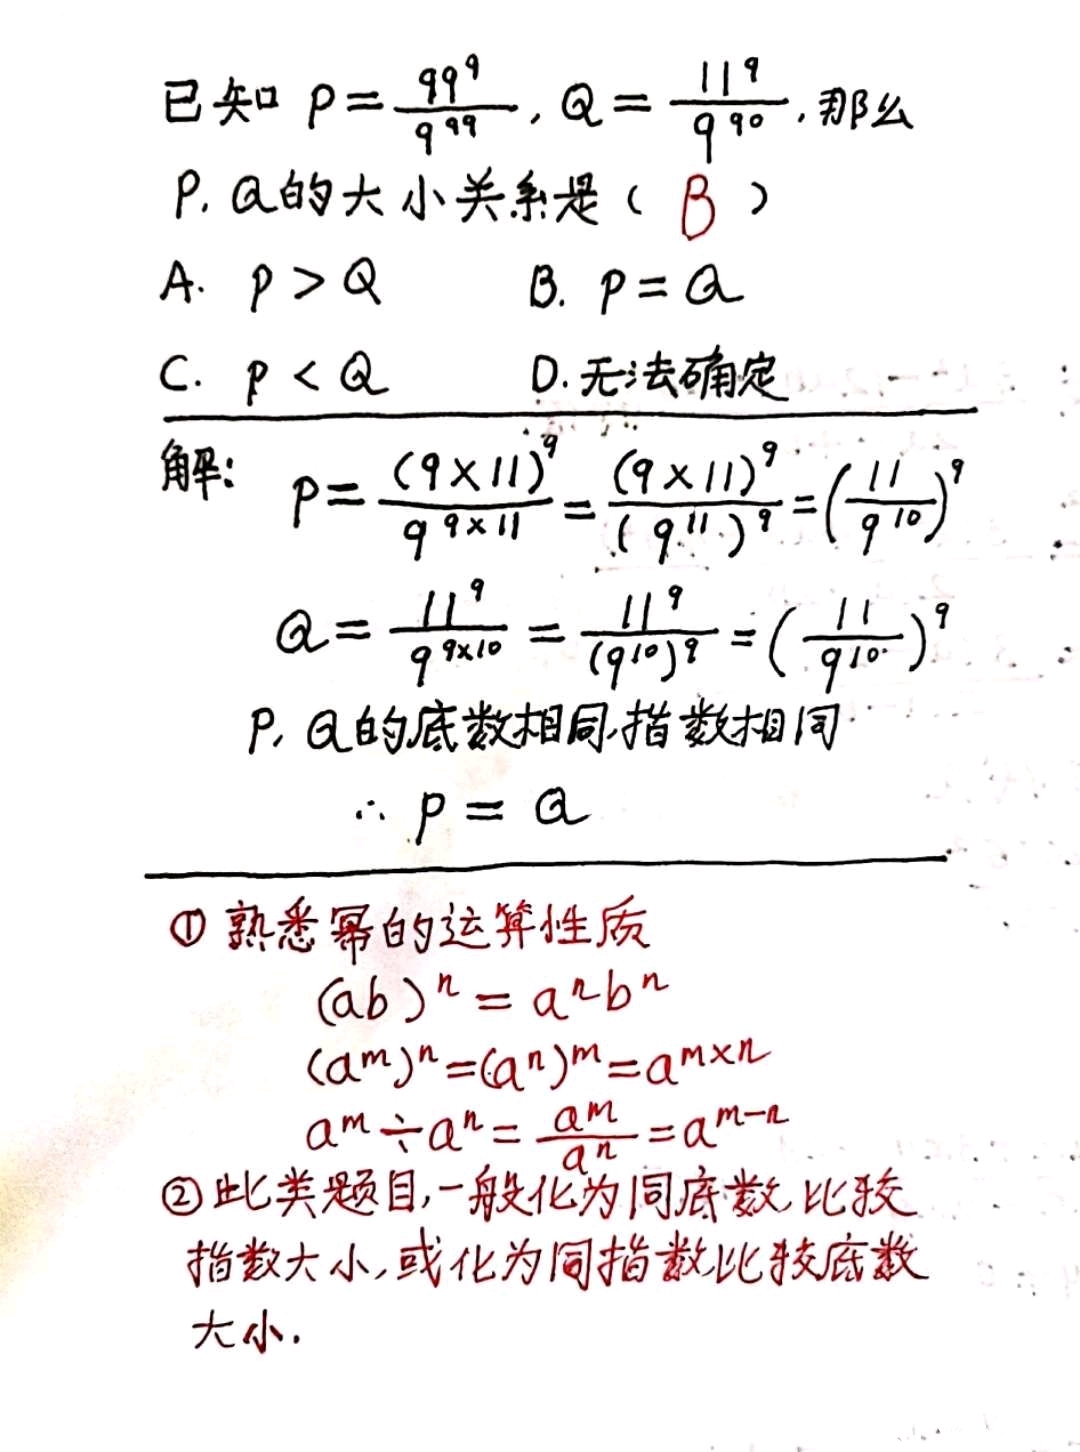 已知 P = 99⁹/9⁹⁹, Q = 11⁹/9⁹⁰, 那么
P, Q的大小关系是 ( B )
A. P > Q    B. P = Q
C. P < Q    D. 无法确定
解: P = (9×11)⁹/9^(9×11) = (9×11)⁹/(9¹¹)⁹ = (11/9¹⁰)⁹
Q = 11⁹/9^(9×10) = 11⁹/(9¹⁰)⁹ = (11/9¹⁰)⁹
P, Q的底数相同, 指数相同
∴ P = Q
① 熟悉幂的运算性质
(ab)ⁿ = aⁿbⁿ
(aᵐ)ⁿ = (aⁿ)ᵐ = a^(m×n)
aᵐ ÷ aⁿ = aᵐ/aⁿ = a^(m-n)
② 此类题目, 一般化为同底数, 比较
指数大小, 或化为同指数, 比较底数
大小.